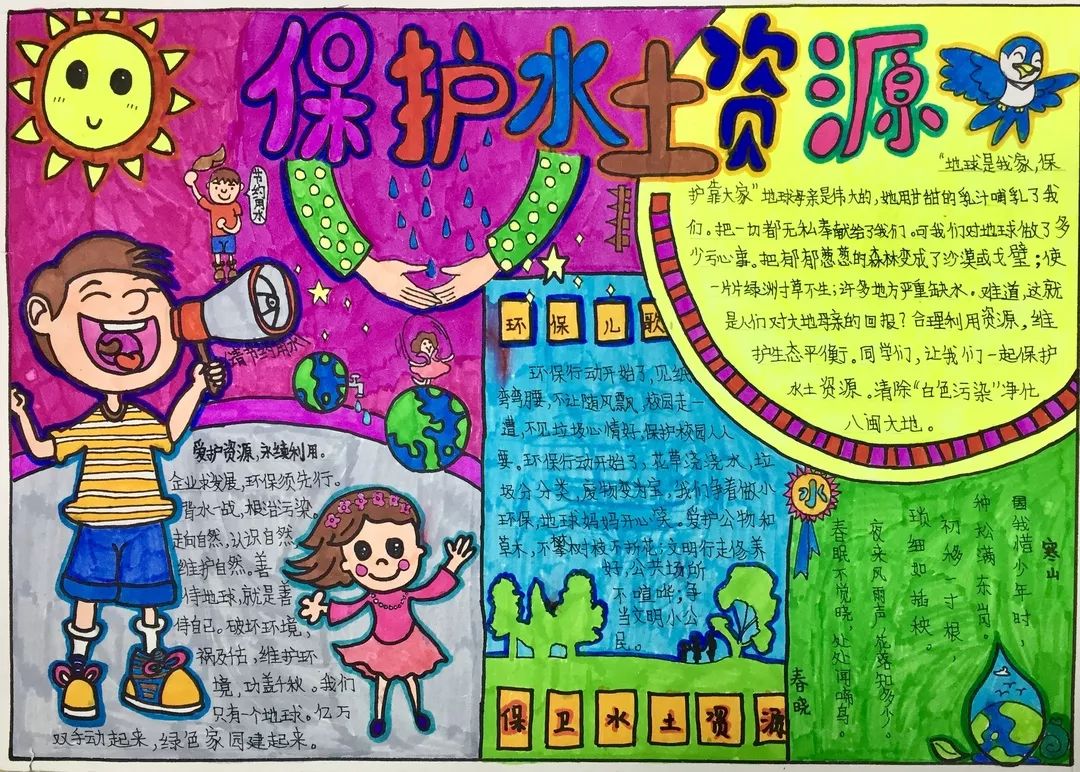 保护水土资源
节约用水
"地球是我家,保
护靠大家"地球母亲是伟大的,她用甘甜的乳汁哺乳了我
们。把一切都无私奉献给了我们。可我们对地球做了多
少亏心事。把郁郁葱葱的森林变成了沙漠或戈壁;使
一片片绿洲寸草不生;许多地方严重缺水。难道,这就
是人们对大地母亲的回报?合理利用资源,维
护生态平衡。同学们,让我们一起保护
水土资源。清除"白色污染"净化
八闽大地。
环保儿歌
环保行动开始了,见纸
弯弯腰,不让随风飘,校园走一
遭,不见垃圾心情好,保护校园人人
要。环保行动开始了,花草浇浇水,垃
圾分分类,废物变为宝。我们争着做小
环保,地球妈妈开心笑。爱护公物和
草木,不攀树枝不折花;文明行走修养
好,公共场所
不喧哗;争
当文明小公
民。
保卫水土资源
爱护资源,永续利用。
企业求发展,环保须先行。
背水一战,根治污染。
走向自然,认识自然,
维护自然。善
待地球,就是善
待自己。破坏环境,
祸及千古,维护环
境,功盖千秋。我们
只有一个地球。亿万
双手动起来,绿色家园建起来。
水
寒山
国我惜少年时,
种松满东岗。
初移一寸根,
琐细如插秧。
夜来风雨声,花落知多少。
春眠不觉晓,处处闻啼鸟。
春晓